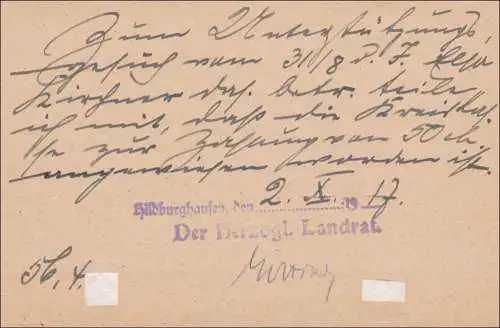 Zum Unterstützungs-
gesuch vom 31/8 d. J. Elsa
Kirchner das. betr. teile
ich mit, daß die Kreiskas-
se zur Zahlung von 50 M.
angewiesen worden ist.
Hildburghausen, den 2. X. 1917.
Der Herzogl. Landrat.
56,4.